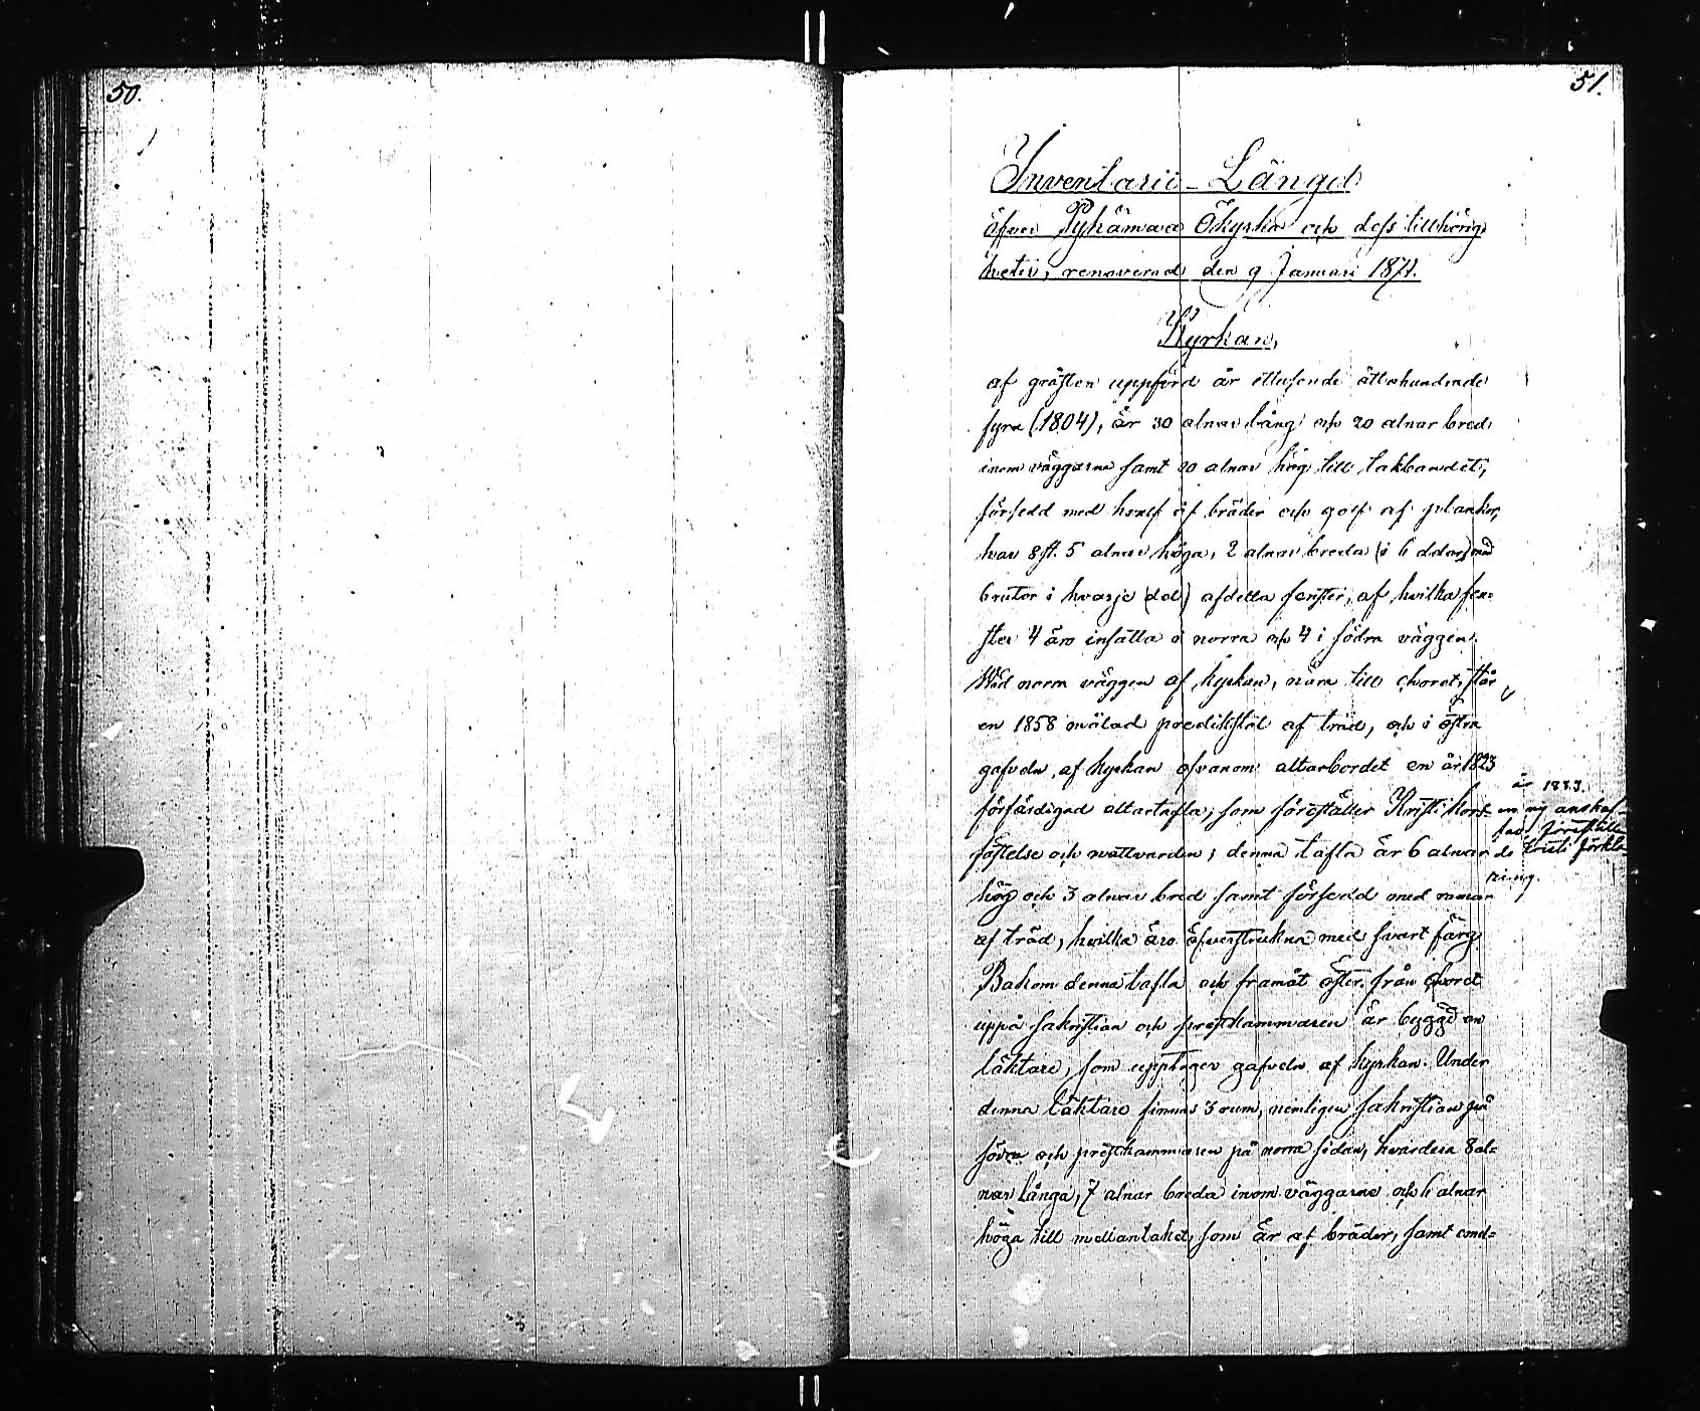 50.
51.
Inventarii-Längd
öfver Pyhämaa Ökyrka och dess tillhörig-
heter, renoverad den 9 Januari 1871.
Kyrkan,
af gråsten uppförd år ettusende åttahundrade
fyra (1804), är 30 alnar lång och 20 alnar bred
inom väggarne samt 20 alnar hög till takbandet,
försedd med hvalf af bräder och golf af plankor,
har 8 st. 5 alnar höga, 2 alnar breda (i 6 delar) med
brutor i hvarje (del) afdelta fenster, af hvilka fen=
ster 4 äro insatta i norra och 4 i södra väggen.
Wid norra väggen af kyrkan, nära till choret, står
en 1858 målad predikstol af träd, och i östra
gafveln af kyrkan ofvanom altarbordet en år 1823
förfärdigad altartafla, som föreställer Kristi kors=
fästelse och nattvarden; denna tafla är 6 alnar
hög och 3 alnar bred samt försedd med ramar
af träd, hvilka äro öfverstrukna med svart färg
Bakom denna tafla och framåt öster från choret
uppå sakristian och prestkammaren är byggd en
läktare, som upptager gafveln af kyrkan. Under
denna läktare finnas 3 rum, nemligen sakristian på
södra och prestkammaren på norra sidan, hvardera 8 al=
nar långa, 7 alnar breda inom väggarne och 6 alnar
höga till mellantaket, som är af bräder, samt emel=
år 1883.
en ny anskaf-
fad, föreställan
de Kristi förkla
ring.